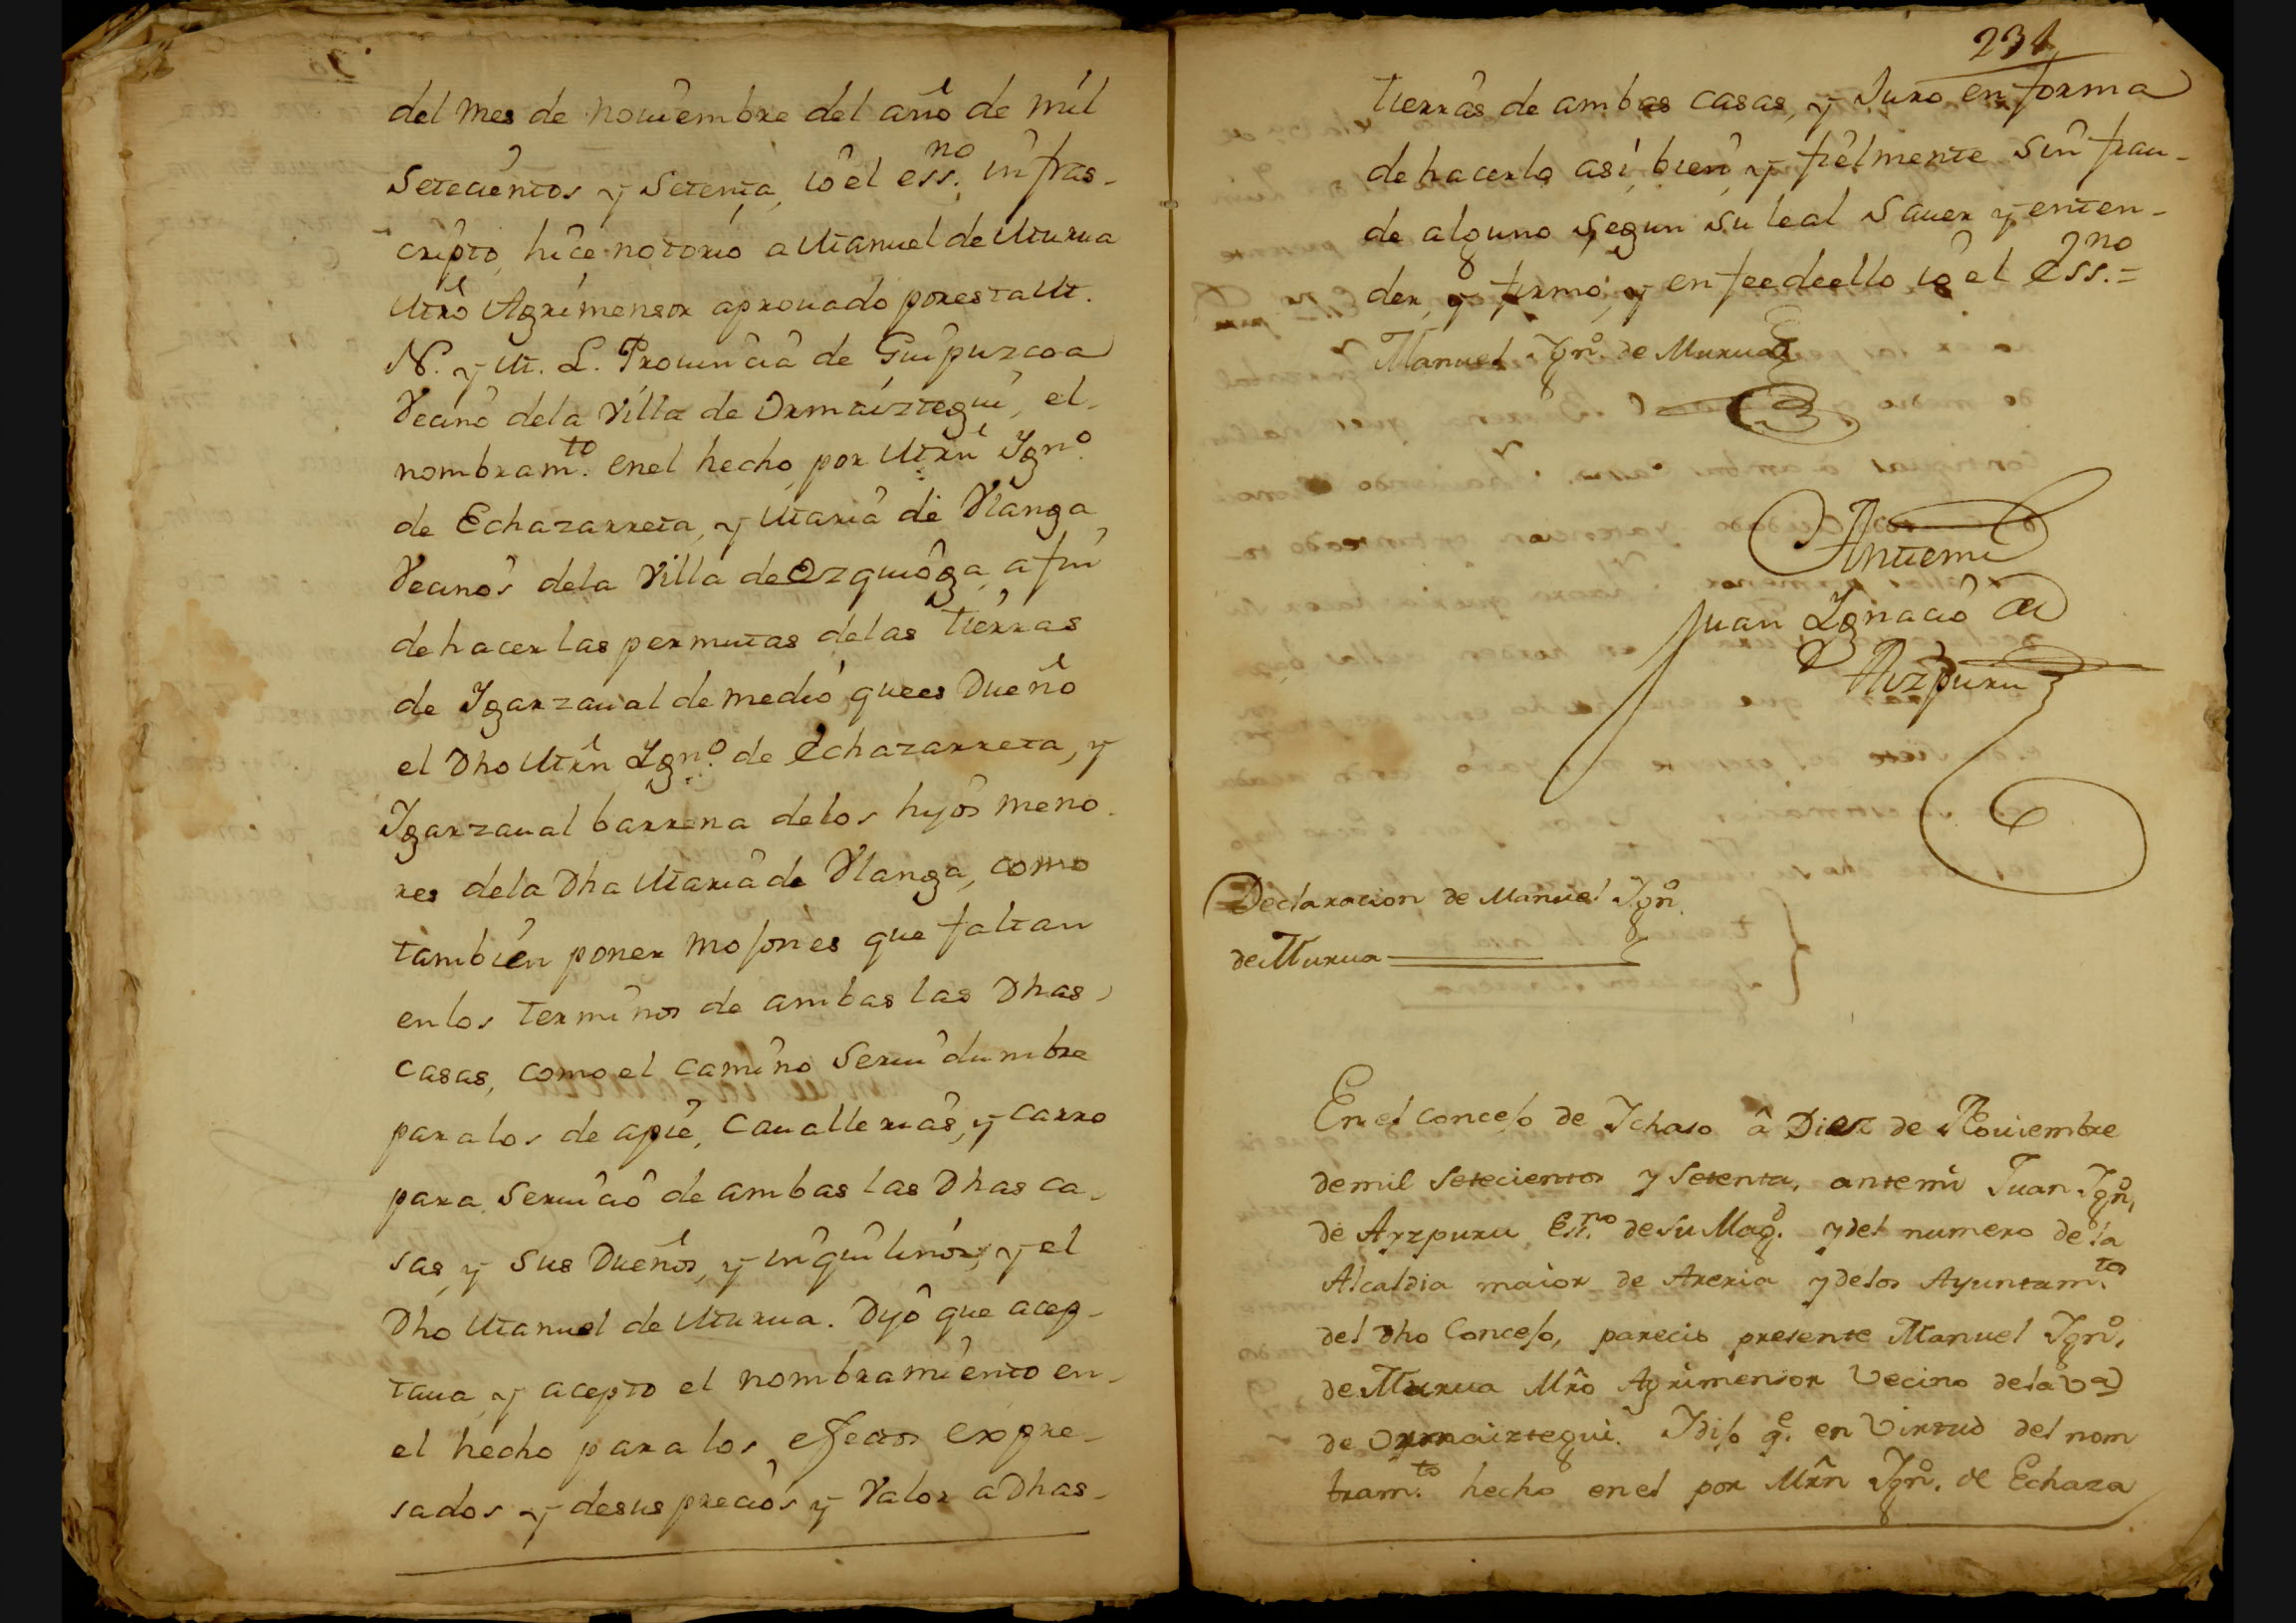 del mes de nouiembre del año de mil
Setecientos y Setenta, io el ess.no infras-
cripto, hice notorio a Manuel de Murua
Mrô Agrimensor aprouado por esta M.
N. y M. L. Prouincia de Guipuzcoa
Vecino dela Villa de Ormaiztegui, el-
nombram.to enel hecho por Mrñ Ign.o
de Echazarreta, y Maria de Vlanga
Vecinos dela Villa de Ozquioga, a fin
de hacer las permutas delas tierras
de Ygarzaual de medio que es Dueño
el Dho Mrñ Ygn.o de Echazarreta, y
Ygarzaual barrena delos hijos meno-
res dela Dha Maria de Vlanga, como
tambien poner mojones que faltan
en los terminos de ambas las Dhas
casas, como el camino Seruidumbre
para los de apie, Cauallerias, y carro
para Seruicio de ambas las Dhas ca-
sas y sus Dueños, y inquilinos, y el
Dho Manuel de Murua. Dijo que acep-
taua y acepto el nombramiento en-
el hecho para los efectos expre-
sados y desus precios y Valor a Dhas-
231
tierras de ambas casas, y Juro en forma
de hacerlo asi, bien y fielmente sin frau-
de alguno segun su leal sauer y enten-
der, y firmo, y en fee de ello io el Ess.no=
Manuel Ygn.o de Murua
Antemi
Juan Ygnacio de
Aizpuru
Declaracion de Manuel Ygn.o
de Murua
En el concejo de Ichaso â Diez de Nouiembre
de mil Setecientos y Setenta, antemi Juan Ygn.o
de Ayzpuru Ess.no de su Mag.d y del numero de la
Alcaldia maior de Areria y delos Ayuntam.tos
del dho Concejo, parecio presente Manuel Ygn.o
de Murua Mrô Agrimensor Vecino dela V.a
de Ormaiztegui. Ydijo q.e en Virtud del nom
bram.to hecho en el por Mrñ Ygn.o de Echaza